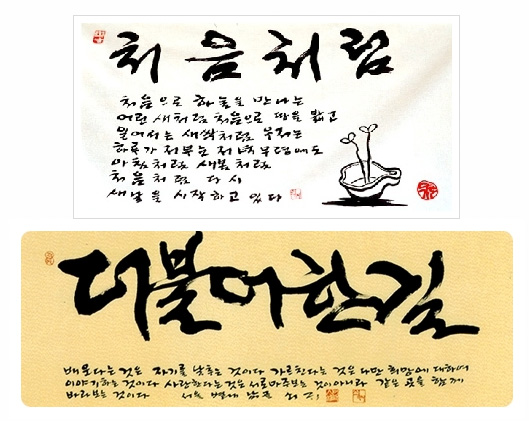 처음처럼
처음으로 하늘을 만나는
어린 새처럼 처음으로 땅을 밟고
일어서는 새싹처럼 우리는
하루가 저무는 저녁무렵에도
아침처럼 새봄처럼
처음처럼 다시
새날을 시작하고 있다
더불어한길
배운다는 것은 자기를 낮추는 것이다 가르친다는 것은 다만 희망에 대하여
이야기하는 것이다 사랑한다는 것은 서로 마주보는 것이 아니라 같은 곳을 함께
바라보는 것이다